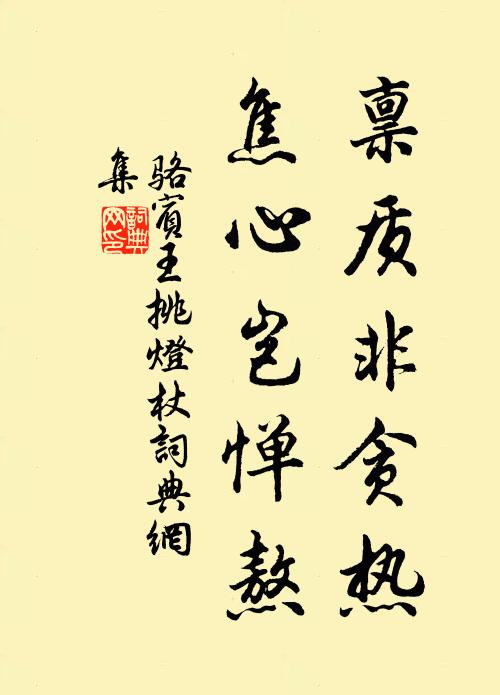 禀质非贪热
焦心岂惮熬
骆賓王挑燈杖詞典網
集
詞典
网印